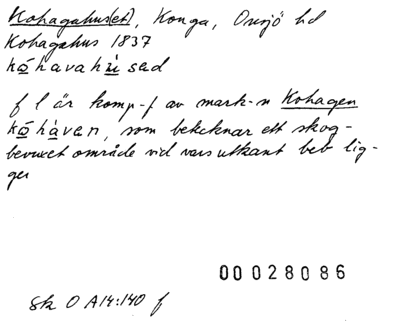 Kohagahus(et), Konga, Onsjö hd
Kohagahus 1837
kåhavahùsəd
f l är komp-f av mark-n Kohagen
kåhàvən, som betecknar ett skog-
bevuxet område vid vars utkant beb lig-
ger
00028086
Sk O A14:140 f